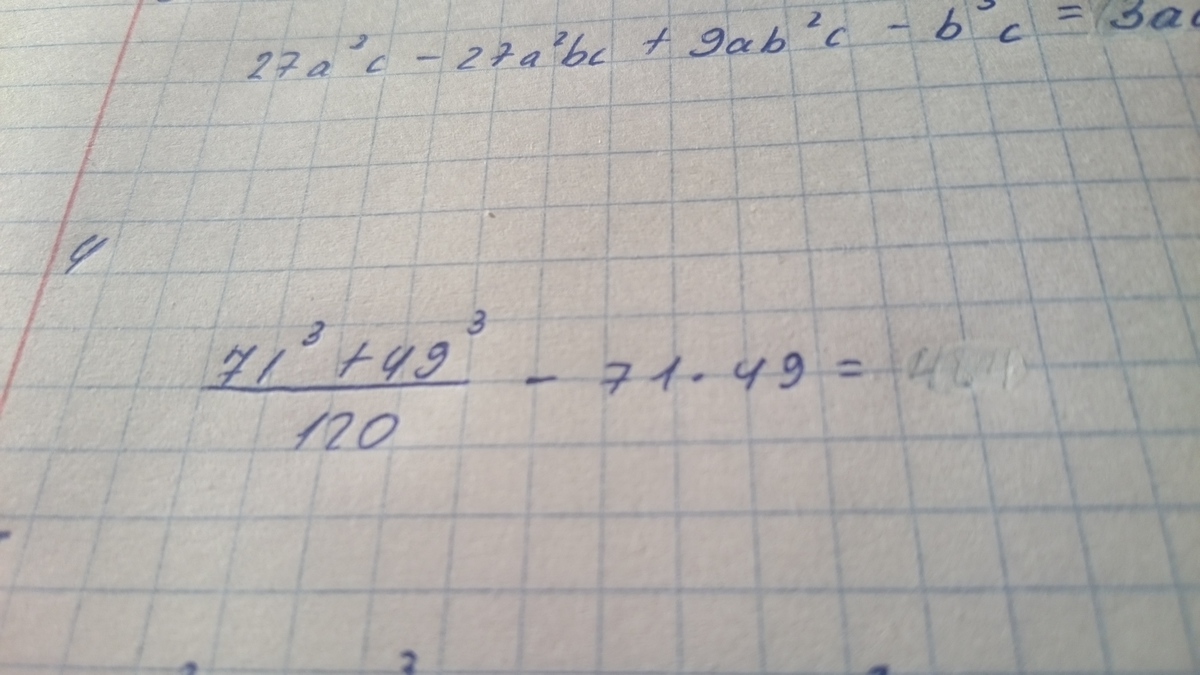 27a³c - 27a²bc + 9ab²c - b³c = 3a
4
71³ + 49³
120
- 71 · 49 =